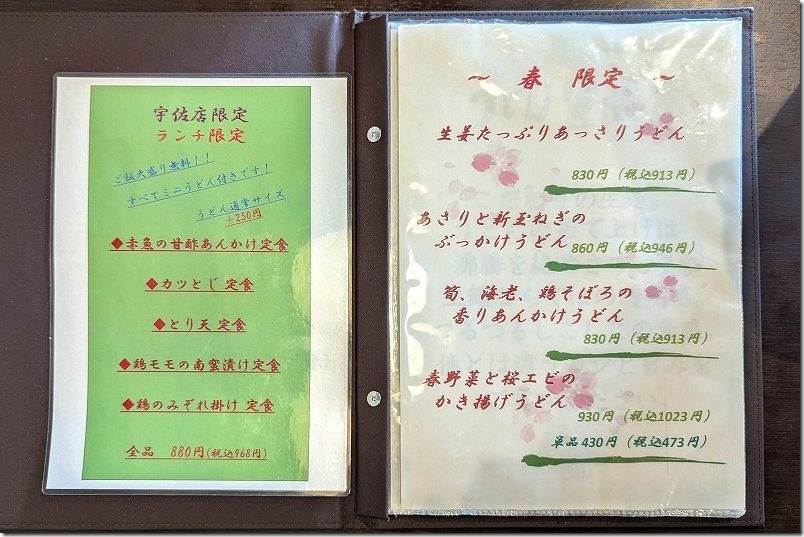 宇佐店限定
ランチ限定
ご飯大盛り無料！！
すべてミニうどん付きです！
うどん通常サイズ
+250円
◆赤魚の甘酢あんかけ定食
◆カツとじ 定食
◆とり天 定食
◆鶏モモの南蛮漬け定食
◆鶏のみぞれ掛け 定食
全品　880円(税込968円)
～　春　限定　～
生姜たっぷりあっさりうどん
830円（税込913円）
あさりと新玉ねぎの
ぶっかけうどん　860円（税込946円）
筍、海老、鶏そぼろの
香りあんかけうどん
830円（税込913円）
春野菜と桜エビの
かき揚げうどん
930円（税込1023円）
単品430円（税込473円）